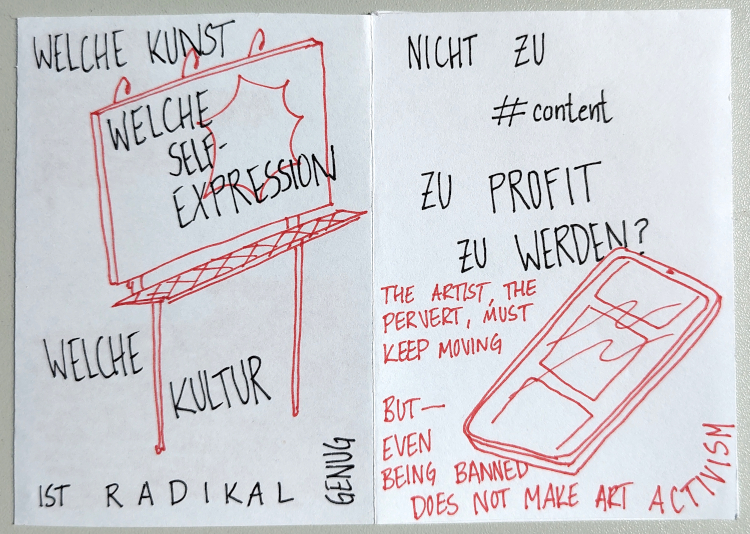 WELCHE KUNST
WELCHE
SELF-
EXPRESSION
WELCHE
KULTUR
IST RADIKAL
GENUG
NICHT ZU
#content
ZU PROFIT
ZU WERDEN?
THE ARTIST, THE
PERVERT, MUST
KEEP MOVING
BUT—
EVEN
BEING BANNED
DOES NOT MAKE ART ACTIVISM